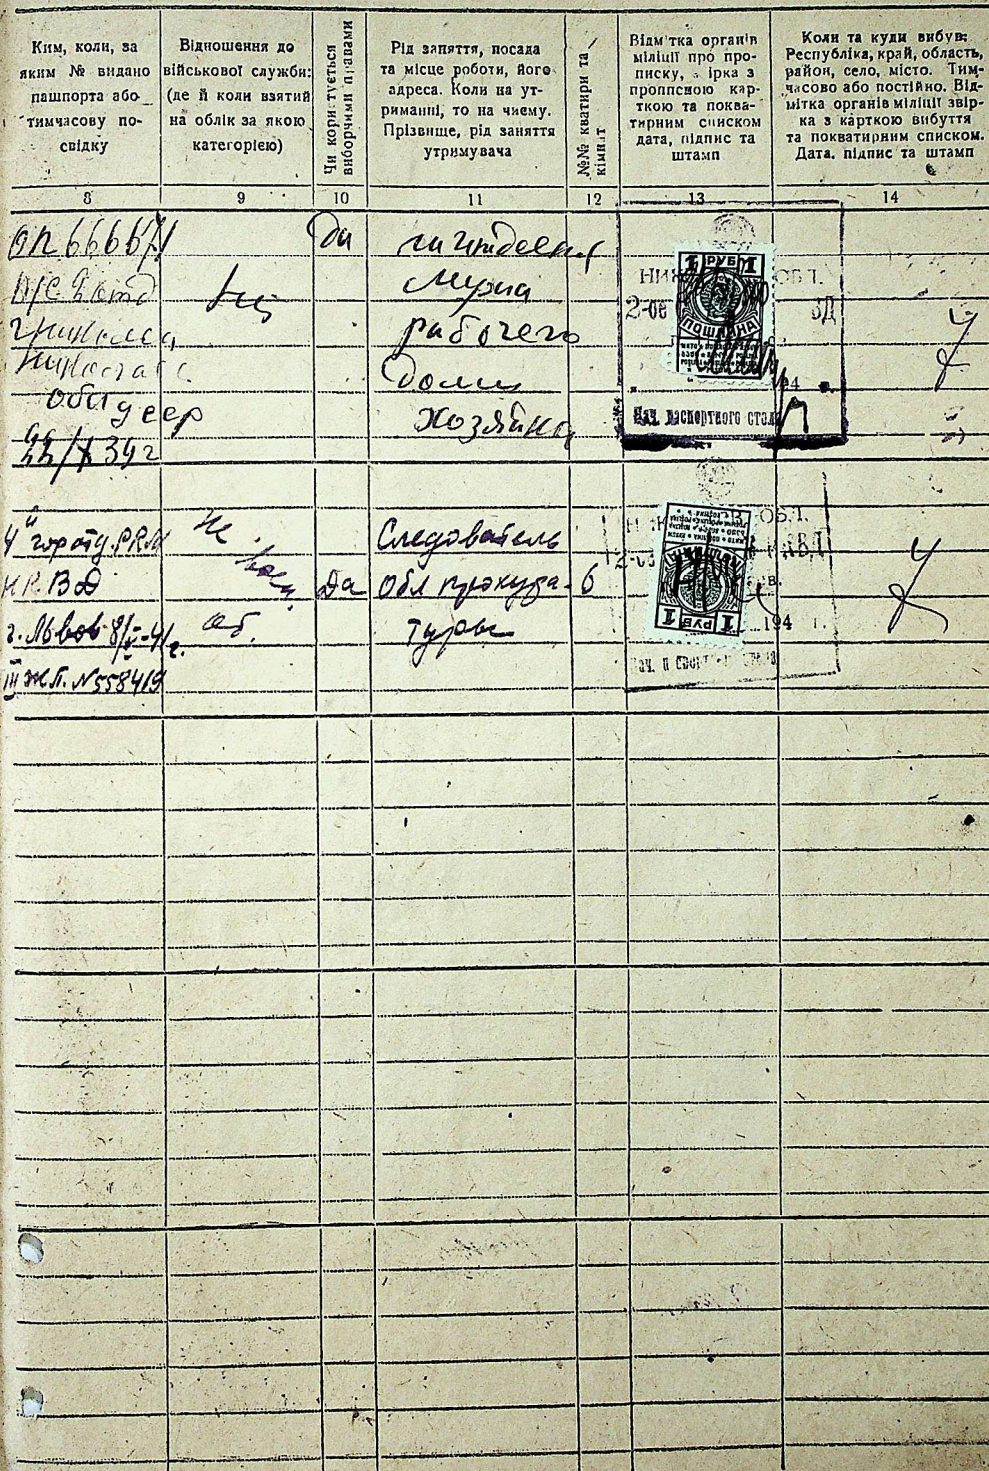 Ким, коли, за
яким № видано
пашпорта або
тимчасову по-
свідку
Відношення до
військової служби:
(де й коли взятий
на облік за якою
категорією)
Чи корис тується
виборчими правами
Рід заняття, посада
та місце роботи, його
адреса. Коли на ут-
риманні, то на чиєму.
Прізвище, рід заняття
утримувача
№№ кватири та
кімнат
Відм'тка органів
міліції про про-
писку, з ірка з
проппсною кар-
ткою та поква-
тирним списком
дата, підпис та
штамп
Коли та куди вибув:
Республіка, край, область,
район, село, місто. Тим-
часово або постійно. Від-
мітка органів міліції звір-
ка з карткою вибуття
та покватирним списком.
Дата. підпис та штамп
8 9 10 11 12 13 14
ОП 666671
да
мужа
рабочего
дом
хозяйка
обл уссР
22/X 39 г
1 РУБ 1
ПОШЛИНА
2-ое
Нач. паспортного стола
4й гор отд. РКМ
НКВД
г. Львов 8/II-41г.
III ЖП. №558419
Не
воен.
об.
Да
Следователь
Обл прокура-
туры
6
ОБЛ.
НКВД
194 г.
1 РУБ 1